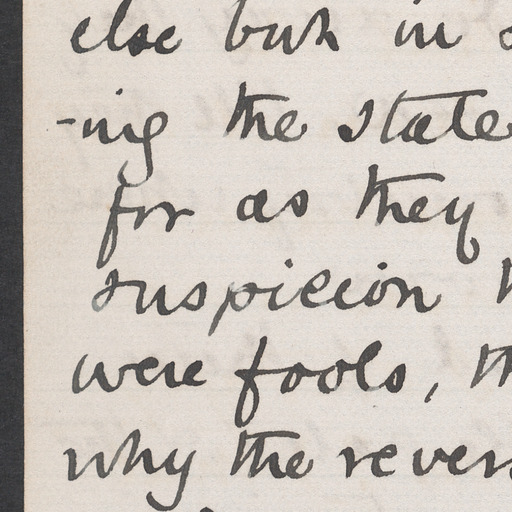 else but in
-ing the state
for as they
suspicion
were fools, th
why the revers